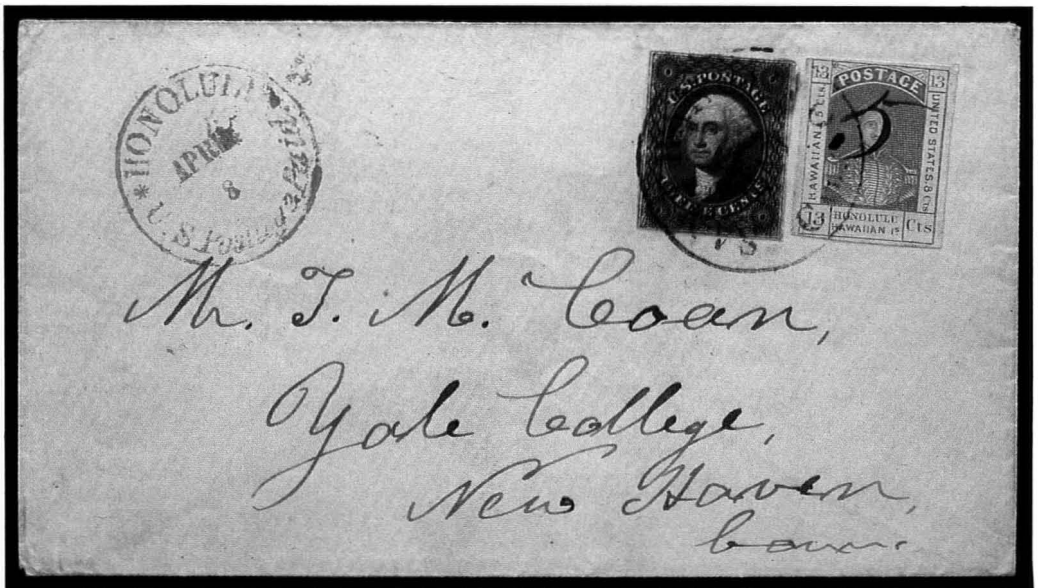 HONOLULU
APRIL
8
* U.S. Postage Paid *
U.S. POSTAGE
TWELVE CENTS
13 POSTAGE 13
HAWAIIAN 5 Cts.
UNITED STATES. 8 Cts.
5
13 HONOLULU Cts
HAWAIIAN Is
Mr. T. M. Coan,
Yale College,
New Haven,
Conn.